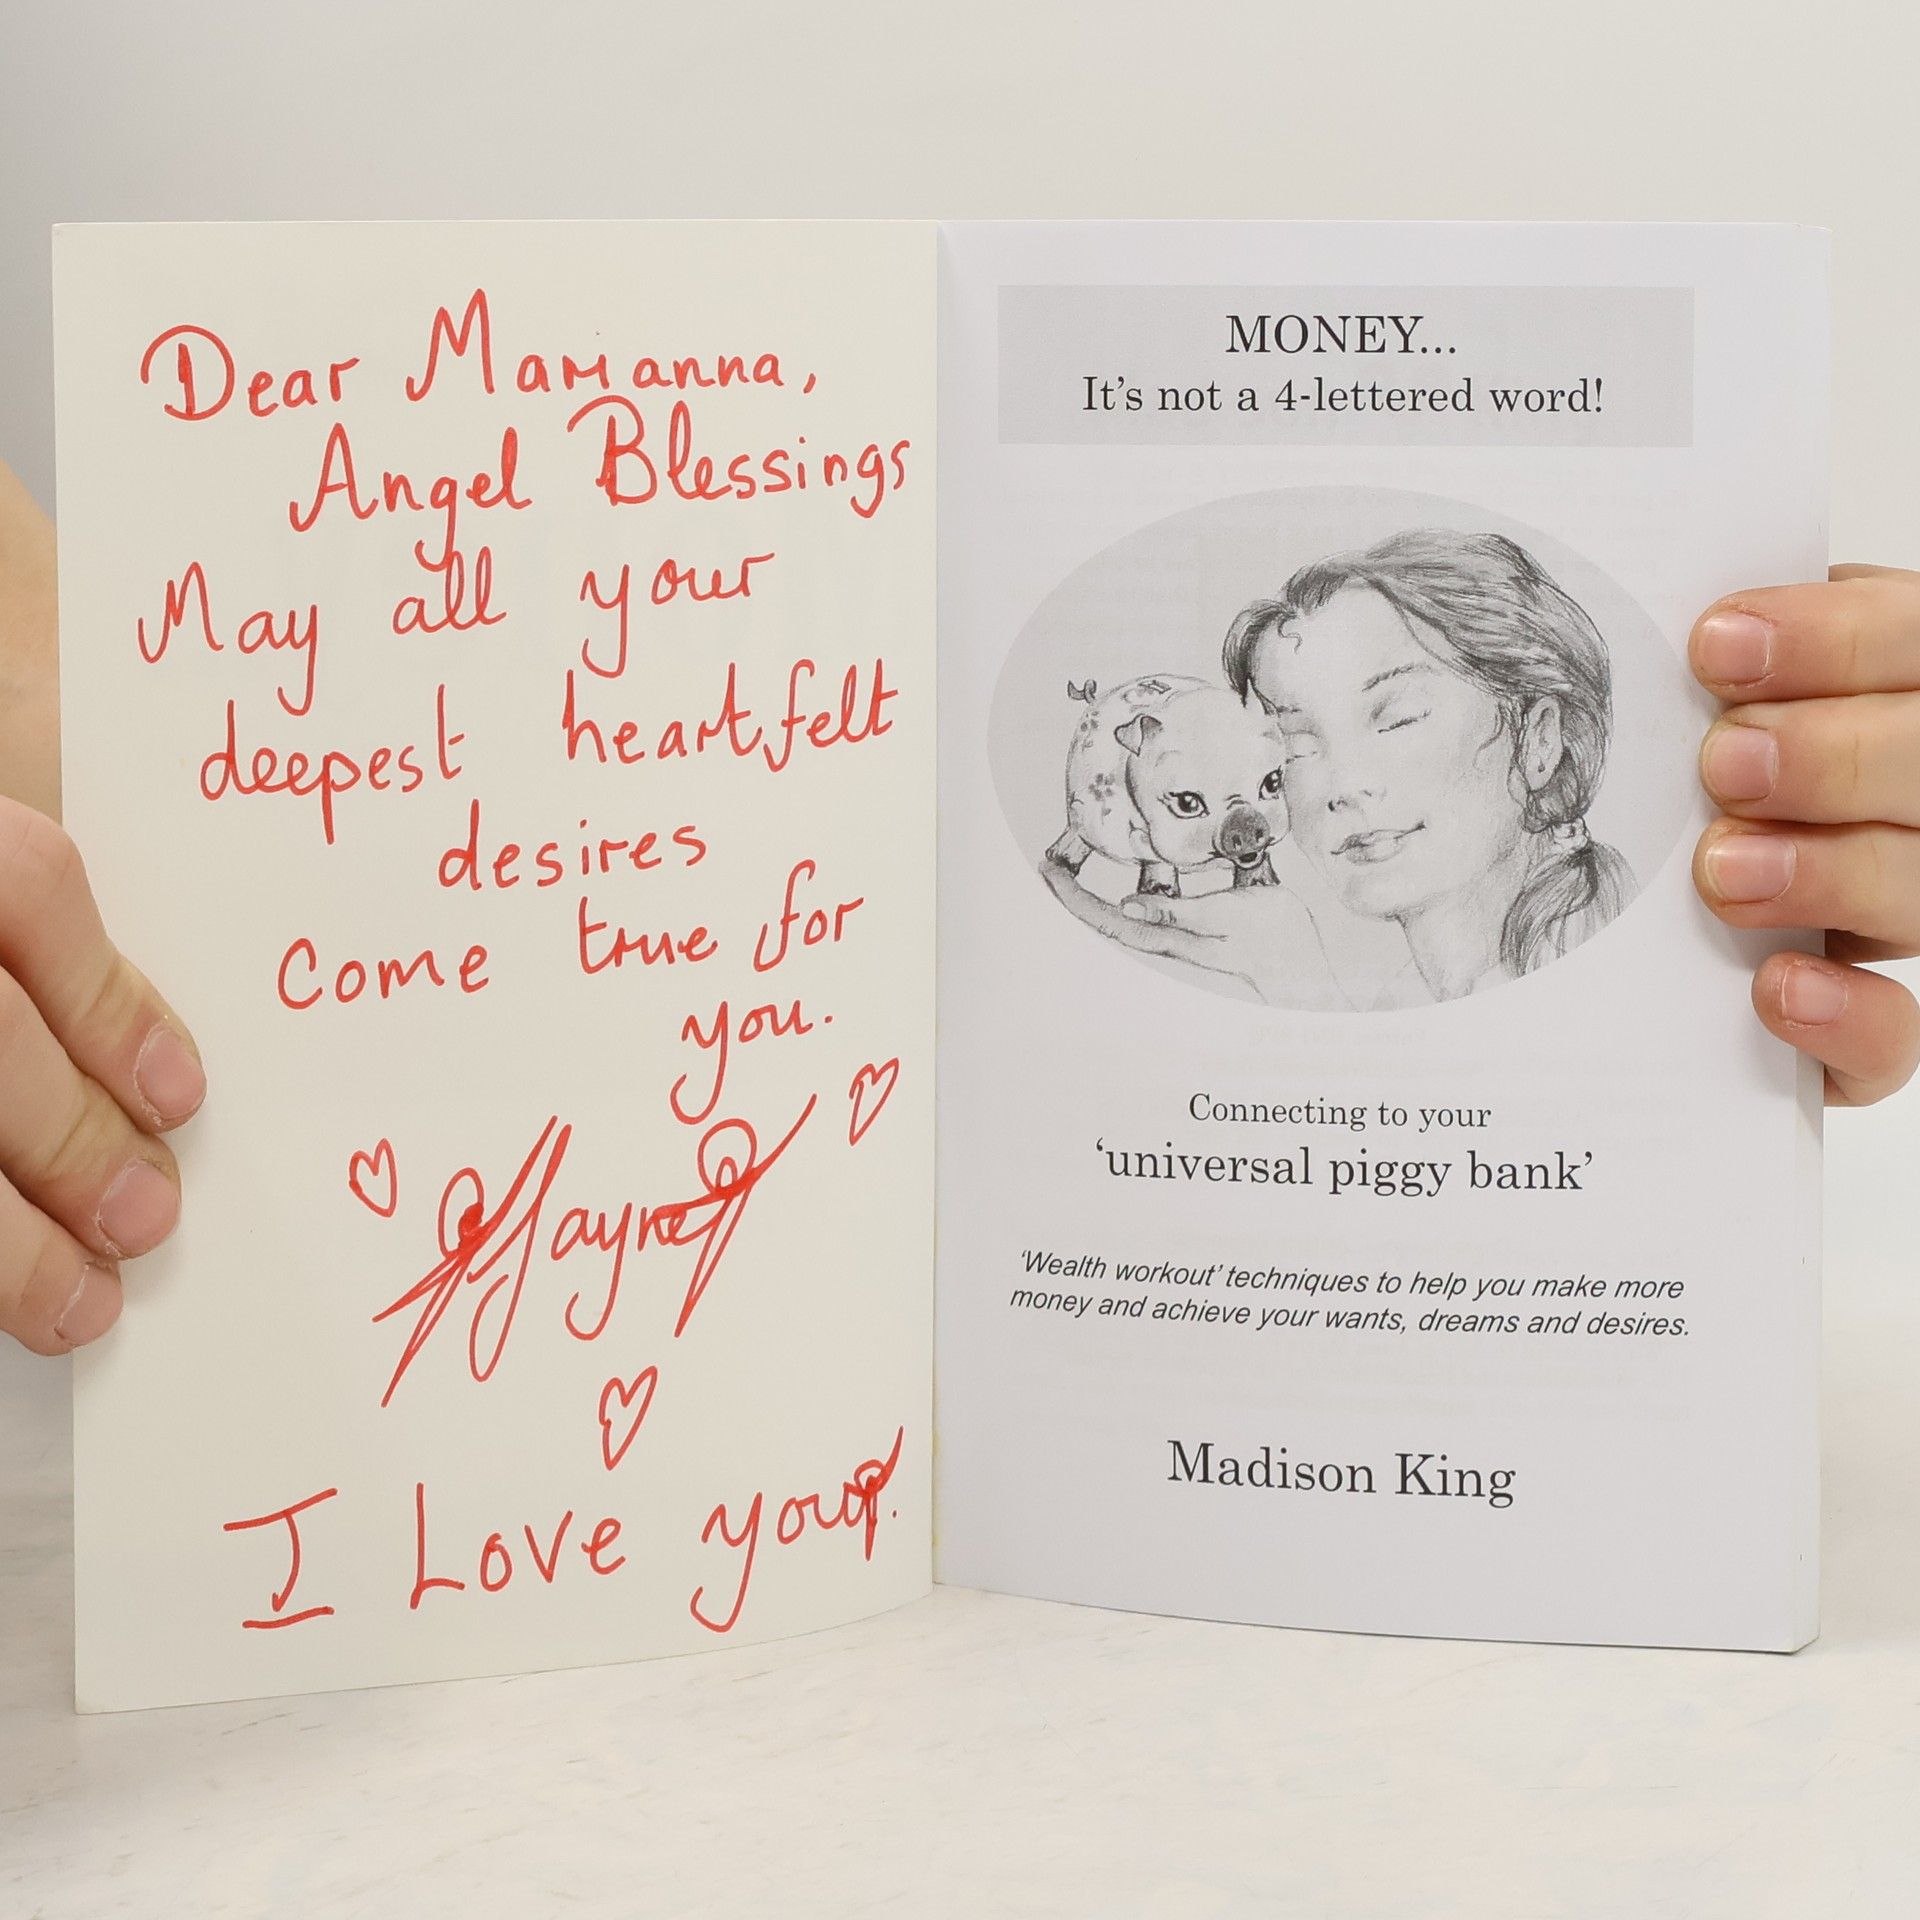 Dear Marianna,
Angel Blessings
May all your
deepest heartfelt
desires
Come true for
you.
Jayne
I Love you.
MONEY...
It's not a 4-lettered word!
Connecting to your
‘universal piggy bank’
‘Wealth workout’ techniques to help you make more
money and achieve your wants, dreams and desires.
Madison King